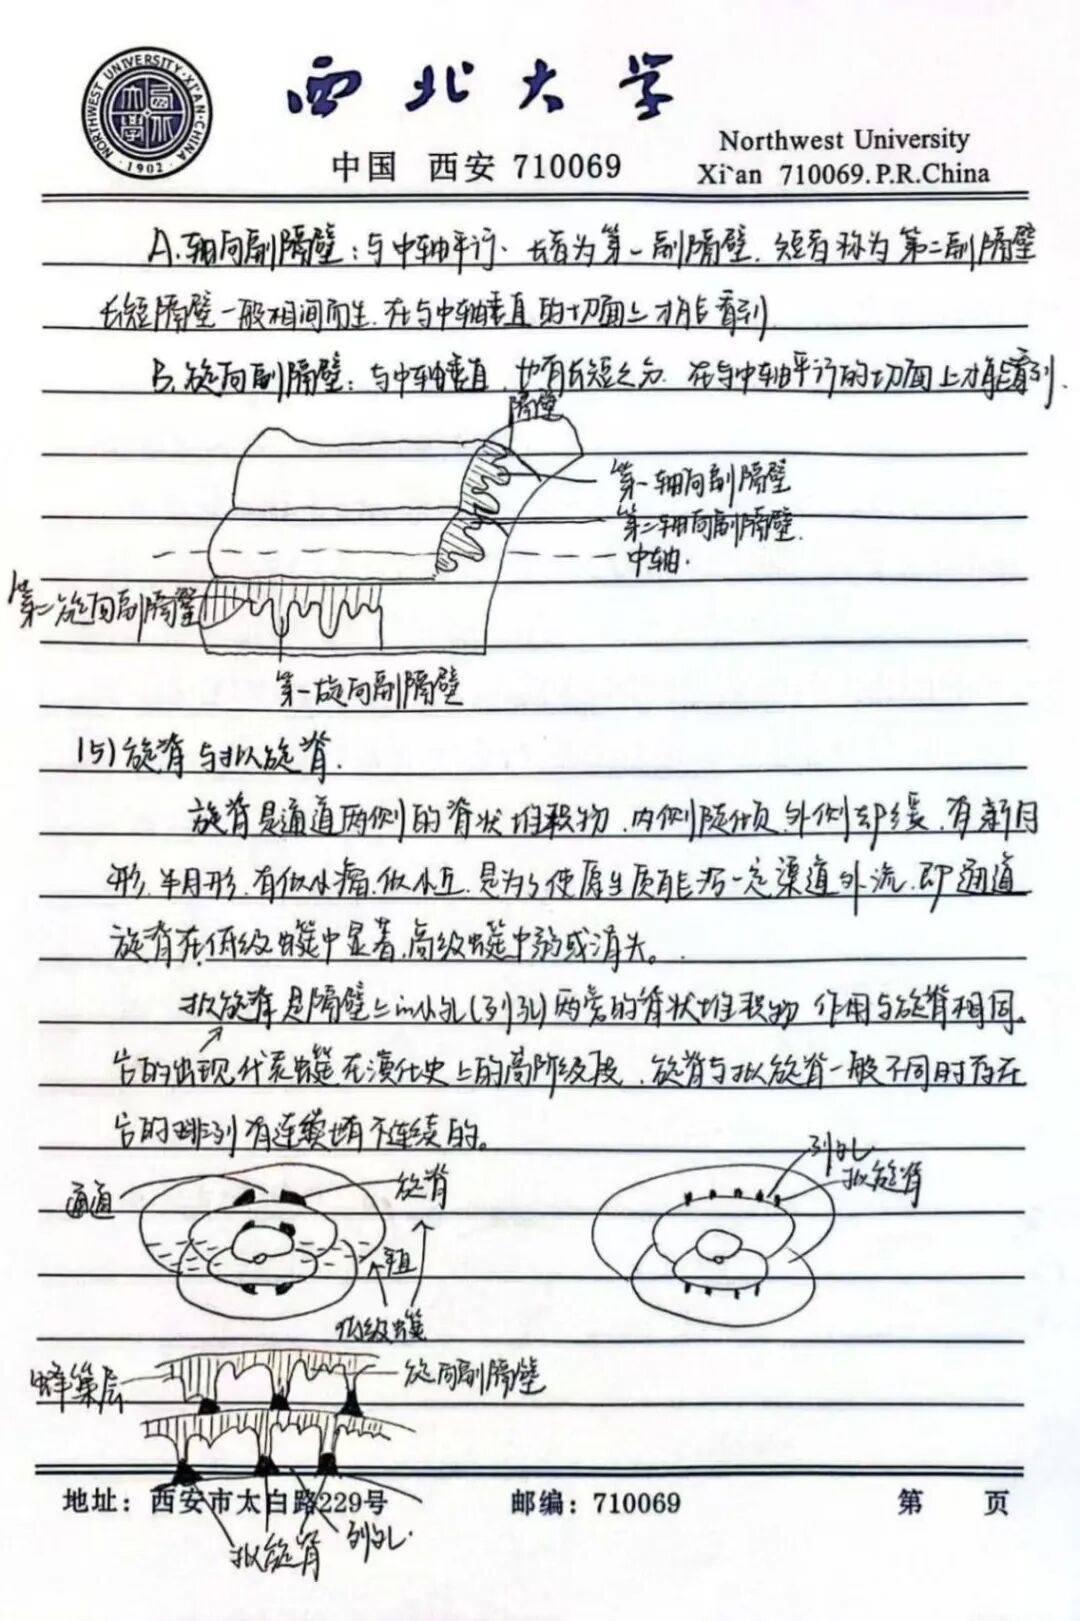 NORTHWEST UNIVERSITY·XI'AN·CHINA
·1902·
西北大学
中国 西安 710069
Northwest University
Xi`an 710069.P.R.China
A.轴向副隔壁：与中轴平行、长者为第一副隔壁.短者称为第二副隔壁
长短隔壁一般相间而生.在与中轴垂直的切面上才能看到
B.旋向副隔壁：与中轴垂直.也有长短之分.在与中轴平行的切面上才能看到.
隔壁
第一轴向副隔壁
第二轴向副隔壁.
中轴.
第二旋向副隔壁
第一旋向副隔壁
(5)旋脊与拟旋脊.
旋脊是通道两侧的脊状堆积物.内侧陡倾.外侧却缓.有新月
形.半月形.有似小瘤.似小丘.是为了使原生质能沿一定渠道外流.即通道
旋脊在低级䗴中显著.高级䗴中弱或消失。
拟旋脊是隔壁上的小孔(列孔)两旁的脊状堆积物 作用与旋脊相同.
它的出现代表䗴在演化史上的高阶级段.旋脊与拟旋脊一般不同时存在
它的排列有连续也有不连续的。
列孔
拟旋脊
通道
旋脊
低级䗴
蜂巢层
旋向副隔壁
地址：西安市太白路229号 邮编：710069 第 页
拟旋脊
列孔.